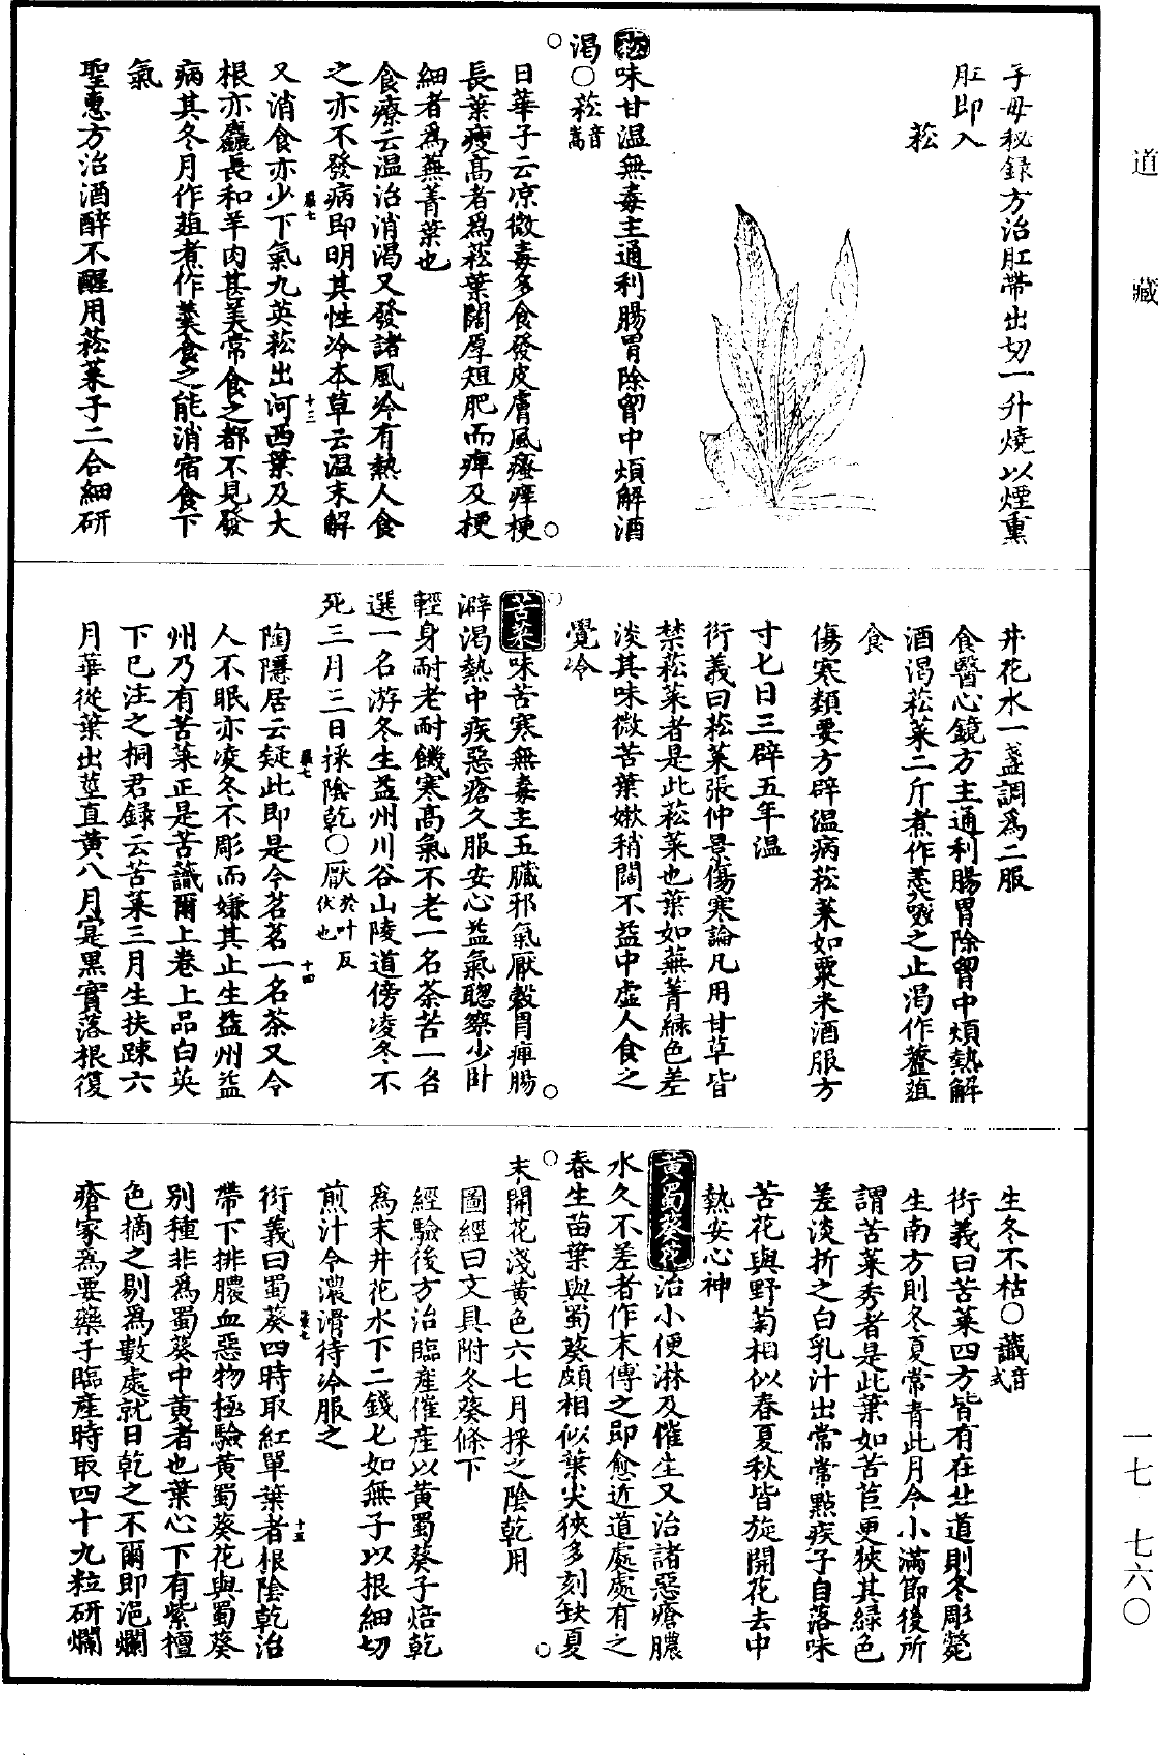 道藏
子母秘録方治肛帶出切一升燒以煙熏
肛即入
菘
菘味甘温無毒主通利腸胃除胷中煩解酒
渴○菘音嵩
日華子云凉微毒多食發皮膚風瘙痒梗
長葉瘦髙者爲菘葉闊厚短肥而痺及梗
細者爲蕪菁葉也
食療云温治消渴又發諸風冷有熱人食
之亦不發病即明其性冷本草云温未解
又消食亦少下氣九英菘出河西葉及大
根亦麤長和羊肉甚美常食之都不見發
病其冬月作葅煮作羹食之能消宿食下
氣
聖惠方治酒醉不醒用菘菜子二合細研
井花水一盞調爲二服
食醫心鏡方主通利腸胃除胷中煩熱解
酒渴菘菜二斤煮作羹啜之止渴作虀葅
食
傷寒類要方辟温病菘菜如粟米酒服方
寸七日三辟五年温
衍義曰菘菜張仲景傷寒論凡用甘草皆
禁菘菜者是此菘菜也葉如蕪菁緑色差
淡其味微苦葉嫩稍闊不益中虚人食之
覺冷
苦菜味苦寒無毒主五臟邪氣厭穀胃痺腸
澼渴熱中疾惡瘡久服安心益氣聰察少卧
輕身耐老耐饑寒髙氣不老一名荼苦一名
選一名游冬生益州川谷山陵道傍凌冬不
死三月三日採陰乾○厭於叶反伏也
陶隱居云疑此即是今茗茗一名荼又令
人不眠亦凌冬不彫而嫌其止生益州益
州乃有苦菜正是苦蘵爾上卷上品白英
下已注之桐君録云苦菜三月生扶踈六
月華從葉出莖直黄八月實黒實落根復
生冬不枯○蘵音式
衍義曰苦菜四方皆有在北道則冬彫斃
生南方則冬夏常青此月令小滿節後所
謂苦菜秀者是此葉如苦苣更狹其緑色
差淡折之白乳汁出常常點疾子自落味
苦花與野菊相似春夏秋皆旋開花去中
熱安心神
黄蜀葵花治小便淋及催生又治諸惡瘡膿
水久不差者作末傅之即愈近道處處有之
春生苗葉與蜀葵頗相似葉尖狹多刻缺夏
末開花淺黄色六七月採之陰乾用
圖經曰文具附冬葵條下
經驗後方治臨産催産以黄蜀葵子焙乾
爲末井花水下二錢七如無子以根細切
煎汁令濃滑待冷服之
衍義曰蜀葵四時取紅單葉者根陰乾治
帶下排膿血惡物極驗黄蜀葵花與蜀葵
别種非爲蜀葵中黄者也葉心下有紫檀
色摘之剔爲數處就日乾之不爾即浥爛
瘡家爲要藥子臨産時取四十九粒研爛
一七 七六○